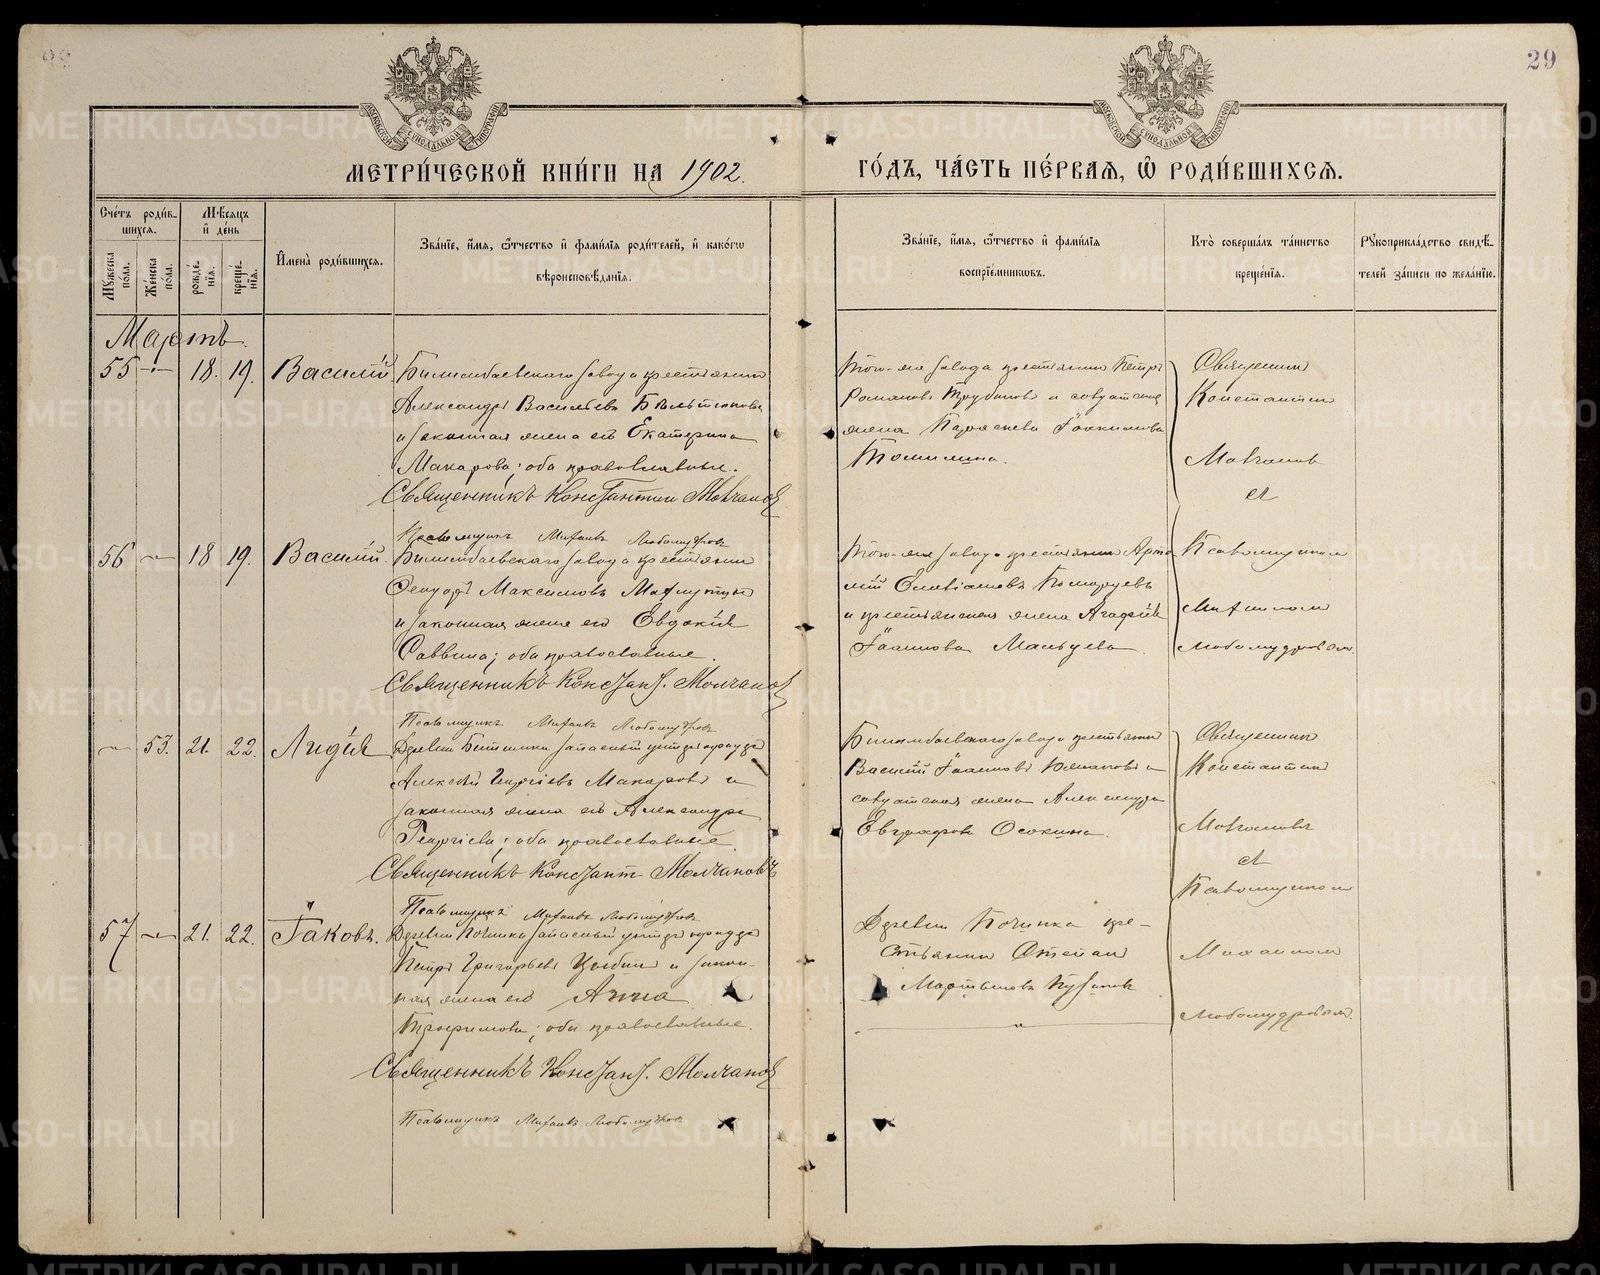 29
МОСКОВСКОЙ СѴНОДАЛЬНОЙ ТИПОГРАФІИ
МОСКОВСКОЙ СѴНОДАЛЬНОЙ ТИПОГРАФІИ
МЕТРИ́ЧЕСКОЙ КНИ́ГИ НА 1902.
ГО́ДЪ, ЧА́СТЬ ПЕ́РВАѦ, Ѡ҆ РОДИ́ВШИХСѦ.
Сче́тъ роди́в-
шихсѧ.
Мѣ́сѧцъ
и҆ де́нь
Мꙋ́жеска
по́ла.
Же́нска
по́ла.
рожде́-
нїѧ.
креще́-
нїѧ.
И҆мена̀ роди́вшихсѧ.
Зва́нїе, и҆́мѧ, ѻ҆́тчество и҆ фами́лїѧ роди́телей, и҆ како́гѡ
вѣроисповѣ́данїѧ.
Зва́нїе, и҆́мѧ, ѻ҆́тчество и҆ фами́лїѧ
воспрїе́мникѡвъ.
Кто̀ соверша́лъ та́инство
креще́нїѧ.
Рꙋкоприкла́дство свидѣ́-
телей за́писи по жела́нїю.
Мартъ.
55 18. 19. Василій
Билимбаевскаго завода крестьянинъ
Александръ Васильевъ
и законная жена его Екатерина
Макарова; оба православные.
Священникъ Константин Молчанов
Псаломщикъ Михаилъ Любомудровъ
Того-же завода крестьянинъ Петръ
Романовъ Трубинов и
жена Іоакимова
Томилина.
Священник
Константин
Молчанов
с
56 18 19. Василій.
Билимбаевскаго завода крестьянинъ
Феодоръ Максимовъ
и законная жена его Евдокія
Саввина; оба православные.
Священникъ Констант. Молчанов
Псаломщикъ Михаилъ Любомудровъ
Того-же завода крестьянинъ
и крестьянская жена Агафія
Іоаннова Мальцева.
Псаломщиком
Михаилом
Любомудровым.
53. 21. 22. Лидія
Деревни запасный унтеръ офицеръ
Алексѣй Георгіевъ Макаровъ и
законная жена его Александра
Георгіева; оба православные.
Священникъ Констант Молчановъ
Псаломщикъ Михаилъ Любомудровъ
Билимбаевскаго завода крестьянинъ
Василій Іоанновъ и
жена Александра
Евграфова Осокина.
Священник
Константин
Молчановъ
с
Псаломщиком
57 21. 22. Іаковъ.
Деревни Починка запасный унтеръ офицеръ
Петръ Григорьевъ и закон-
ная жена его Анна
Трофимова; оба православные.
Священникъ Констант. Молчанов
Псаломщикъ Михаилъ Любомудровъ
Деревни Починка кре-
стьянин Степан
Мартынов
Михаилом
Любомудровым.
METRIKI.GASO-URAL.RU